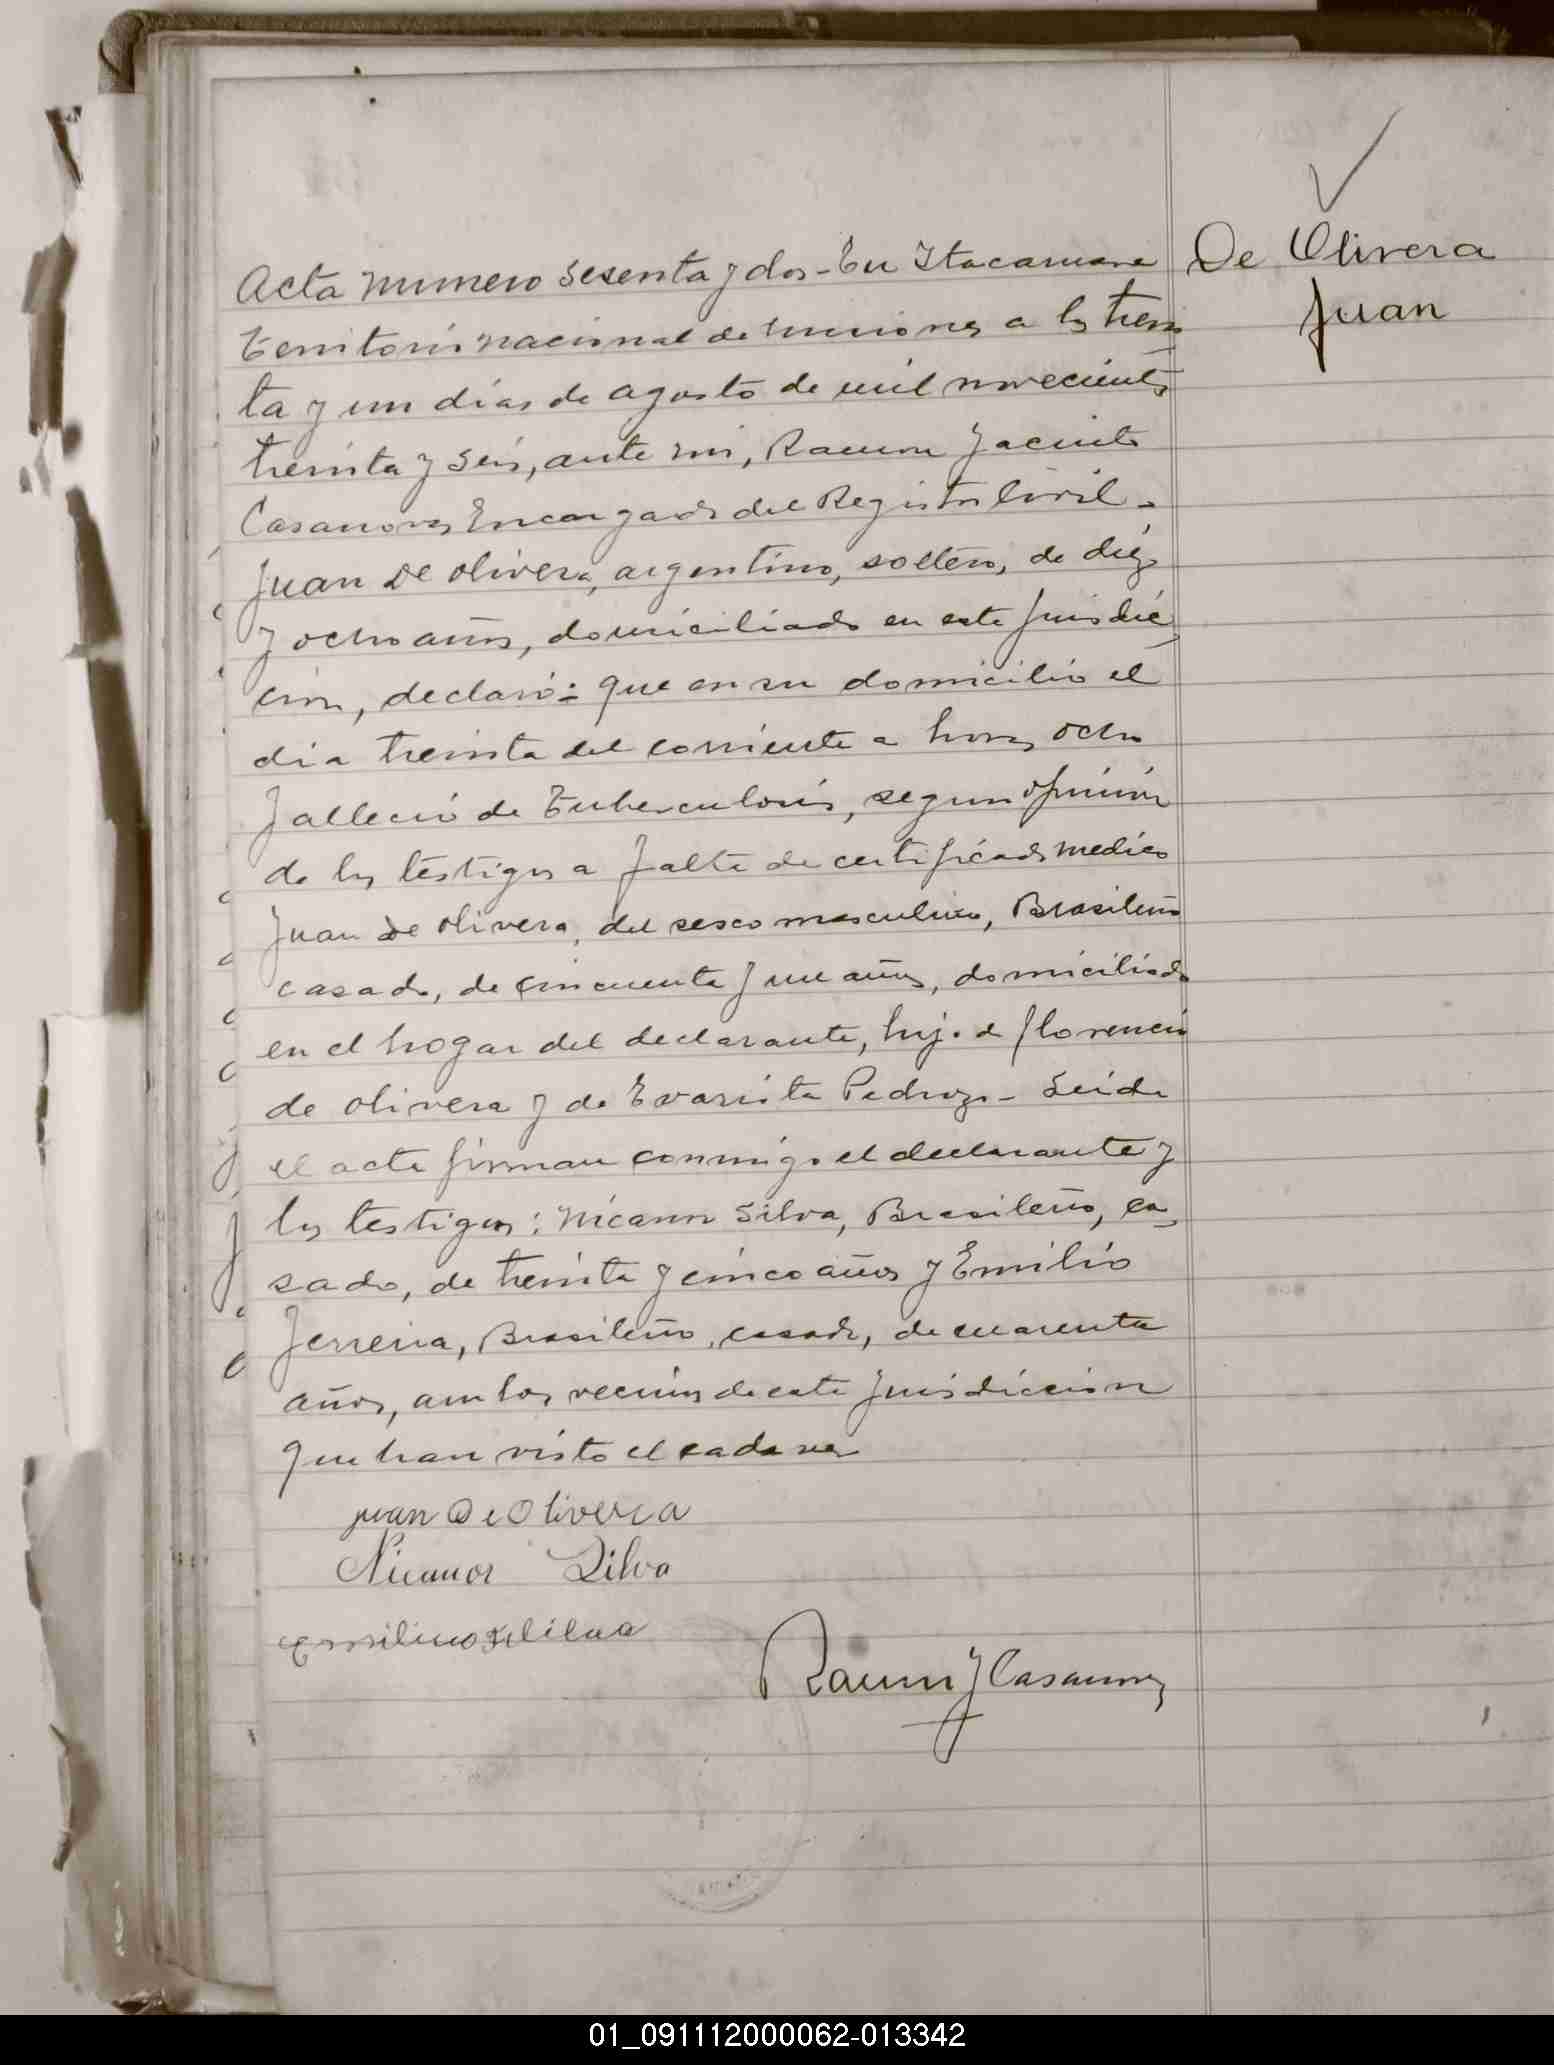 De Olivera
Juan
Acta numero sesenta y dos - En Itacaruare
Territorio nacional de Misiones a los trein
ta y un dias de agosto de mil novecientos
treinta y seis, ante mi, Ramon Jacinto
Casanova Encargado del Registro Civil -
Juan De Olivera, argentino, soltero, de diez
y ocho años, domiciliado en esta jurisdic
cion, declaró: que en su domicilio el
dia treinta del corriente a horas ocho
falleció de Tuberculosis, segun opinión
de los testigos a falta de certificado medico
Juan de Olivera, del sesco masculino, Brasileño
casado, de cincuenta y un años, domiciliado
en el hogar del declarante, hijo de Florencio
de Olivera y de Evarista Pedrozo - Leida
el acta firman conmigo el declarante y
los testigos: Nicanor Silva, Brasileño, ca
sado, de treinta y cinco años y Emilio
Ferreira, Brasileño, casado, de cuarenta
años, ambos vecinos de esta jurisdiccion
que han visto el cadaver
juan De Olivera
Nicanor Silva
Ramon J Casanova
01_091112000062-013342